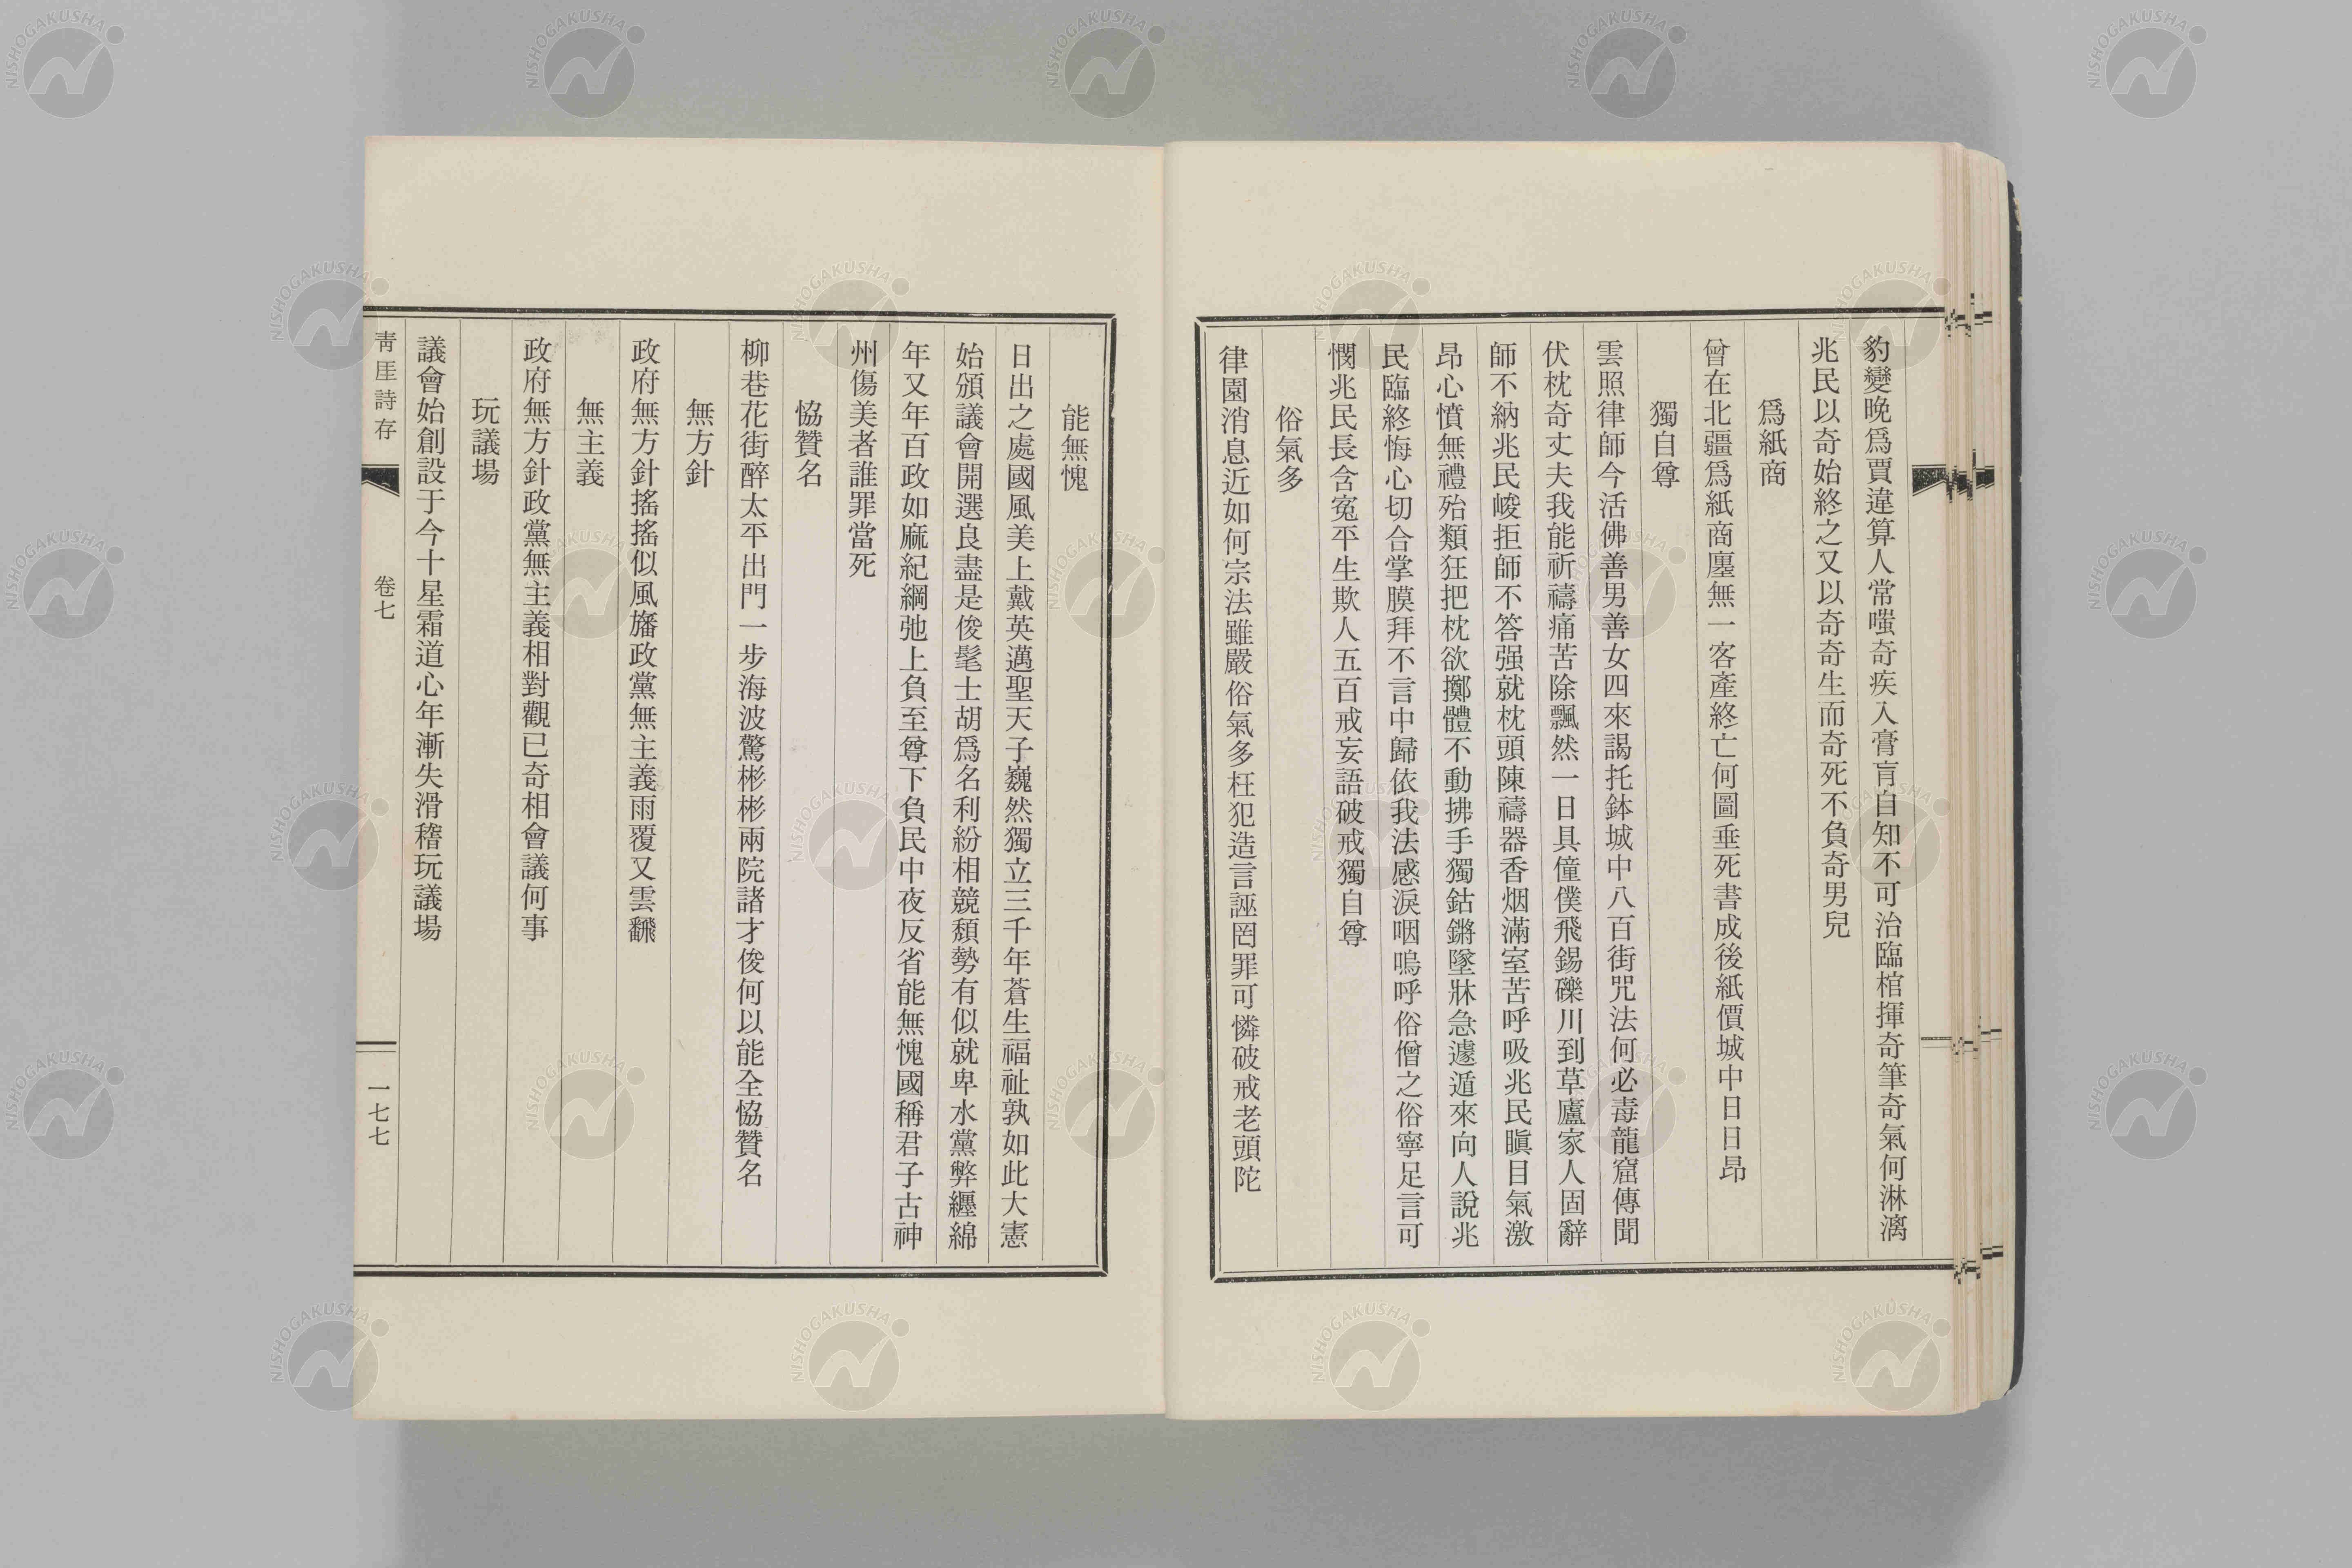 豹變晚爲賈違算人常嗤奇疾入膏肓自知不可治臨棺揮奇筆奇氣何淋漓
兆民以奇始終之又以奇奇生而奇死不負奇男兒
爲紙商
曾在北疆爲紙商廛無一客產終亡何圖垂死書成後紙價城中日日昂
獨自尊
雲照律師今活佛善男善女四來謁托鉢城中八百街咒法何必毒龍窟傳聞
伏枕奇丈夫我能祈禱痛苦除飄然一日具僮僕飛錫礫川到草廬家人固辭
師不納兆民峻拒師不答强就枕頭陳禱器香烟滿室苦呼吸兆民瞋目氣激
昂心憤無禮殆類狂把枕欲擲體不動拂手獨鈷鏘墜牀急遽遁來向人說兆
民臨終悔心切合掌膜拜不言中歸依我法感淚咽嗚呼俗僧之俗寧足言可
憫兆民長含寃平生欺人五百戒妄語破戒獨自尊
俗氣多
律園消息近如何宗法雖嚴俗氣多枉犯造言誣罔罪可憐破戒老頭陀
能無愧
日出之處國風美上戴英邁聖天子巍然獨立三千年蒼生福祉孰如此大憲
始頒議會開選良盡是俊髦士胡爲名利紛相競頽勢有似就卑水黨弊纒綿
年又年百政如麻紀綱弛上負至尊下負民中夜反省能無愧國稱君子古神
州傷美者誰罪當死
恊贊名
柳巷花街醉太平出門一步海波驚彬彬兩院諸才俊何以能全恊贊名
無方針
政府無方針搖搖似風旛政黨無主義雨覆又雲飜
無主義
政府無方針政黨無主義相對觀已奇相會議何事
玩議場
議會始創設于今十星霜道心年漸失滑稽玩議場
靑厓詩存
卷七
一七七
NISHOGAKUSHA